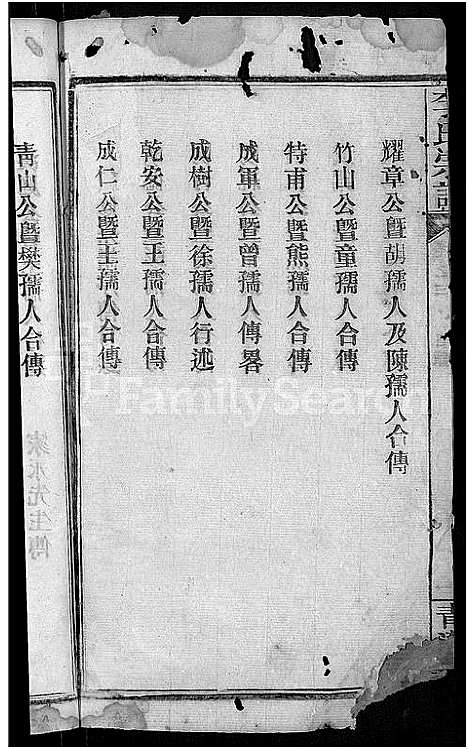 李氏宗譜
耀章公暨胡孺人及陳孺人合傳
竹山公暨童孺人合傳
特甫公暨熊孺人合傳
成軍公暨曾孺人傳畧
成樹公暨徐孺人行述
乾安公暨王孺人合傳
成仁公暨王孺人合傳
青山公暨樊孺人合傳
先生傳
FamilySearch